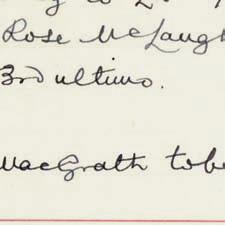 Rose McLaugh
3rd ultimo.
MacGrath to be